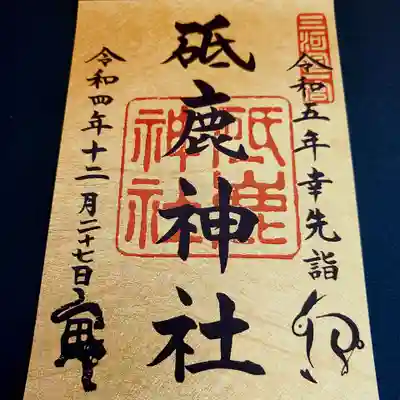 三河國一宮
令和五年幸先詣
卯
砥鹿神社
砥鹿神社
令和四年十二月二十七日
寅